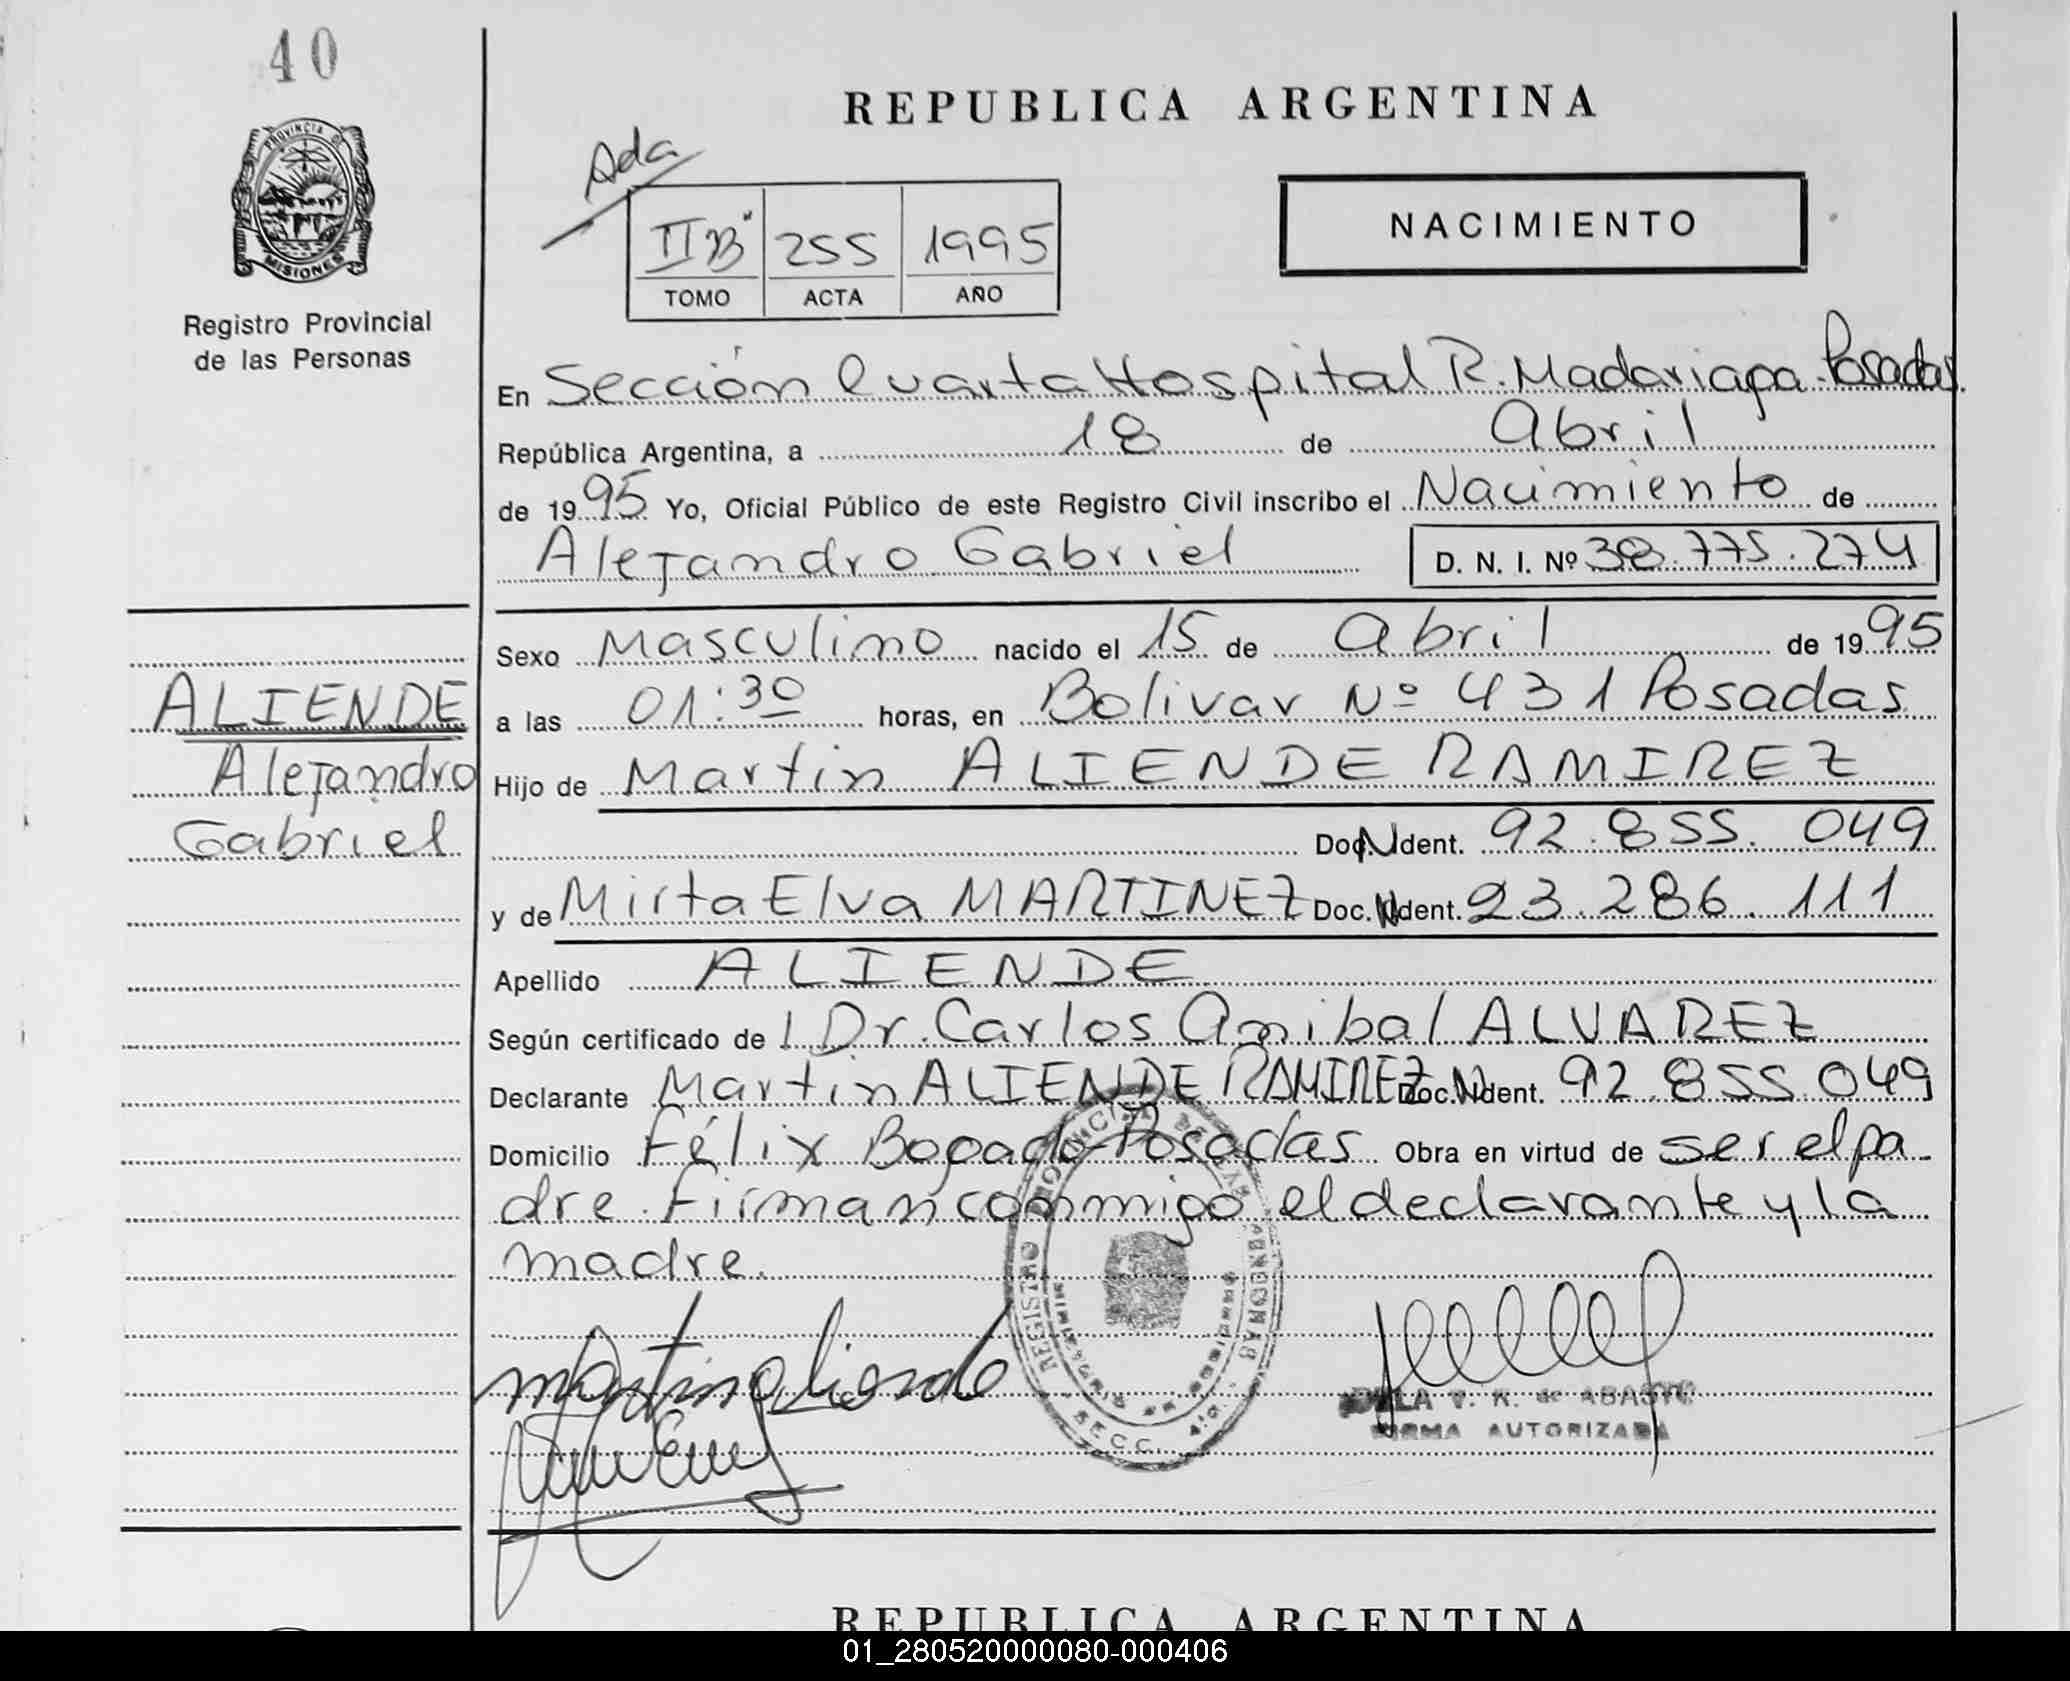 40
REPUBLICA ARGENTINA
Ada
PROVINCIA DE
MISIONES
IIB" 255 1995
TOMO ACTA AÑO
NACIMIENTO
Registro Provincial
de las Personas
En Sección Cuarta Hospital R. Madariaga. Posadas.
República Argentina, a 18 de Abril
de 1995 Yo, Oficial Público de este Registro Civil inscribo el Nacimiento de
Alejandro Gabriel D. N. I. Nº 38.775.274
Sexo Masculino nacido el 15 de Abril de 1995
ALIENDE
Alejandro
Gabriel
a las 01:30 horas, en Bolivar Nº 431 Posadas
Hijo de Martin ALIENDE RAMIREZ
Doc. N Ident. 92.855.049
y de Mirta Elva MARTINEZ Doc. N Ident. 23.286.111
Apellido ALIENDE
Según certificado de l Dr. Carlos Anibal ALVAREZ
Declarante Martin ALIENDE RAMIREZ Doc. N Ident. 92.855.049
Domicilio Félix Bogado-Posadas Obra en virtud de ser el pa
dre. Firman conmigo el declarante y la
madre.
martin aliende
REGISTRO PROVINCIAL DE LAS PERSONAS
SECC. 4ta.
DE ABASTO
FIRMA AUTORIZADA
REPUBLICA ARGENTINA
01_280520000080-000406